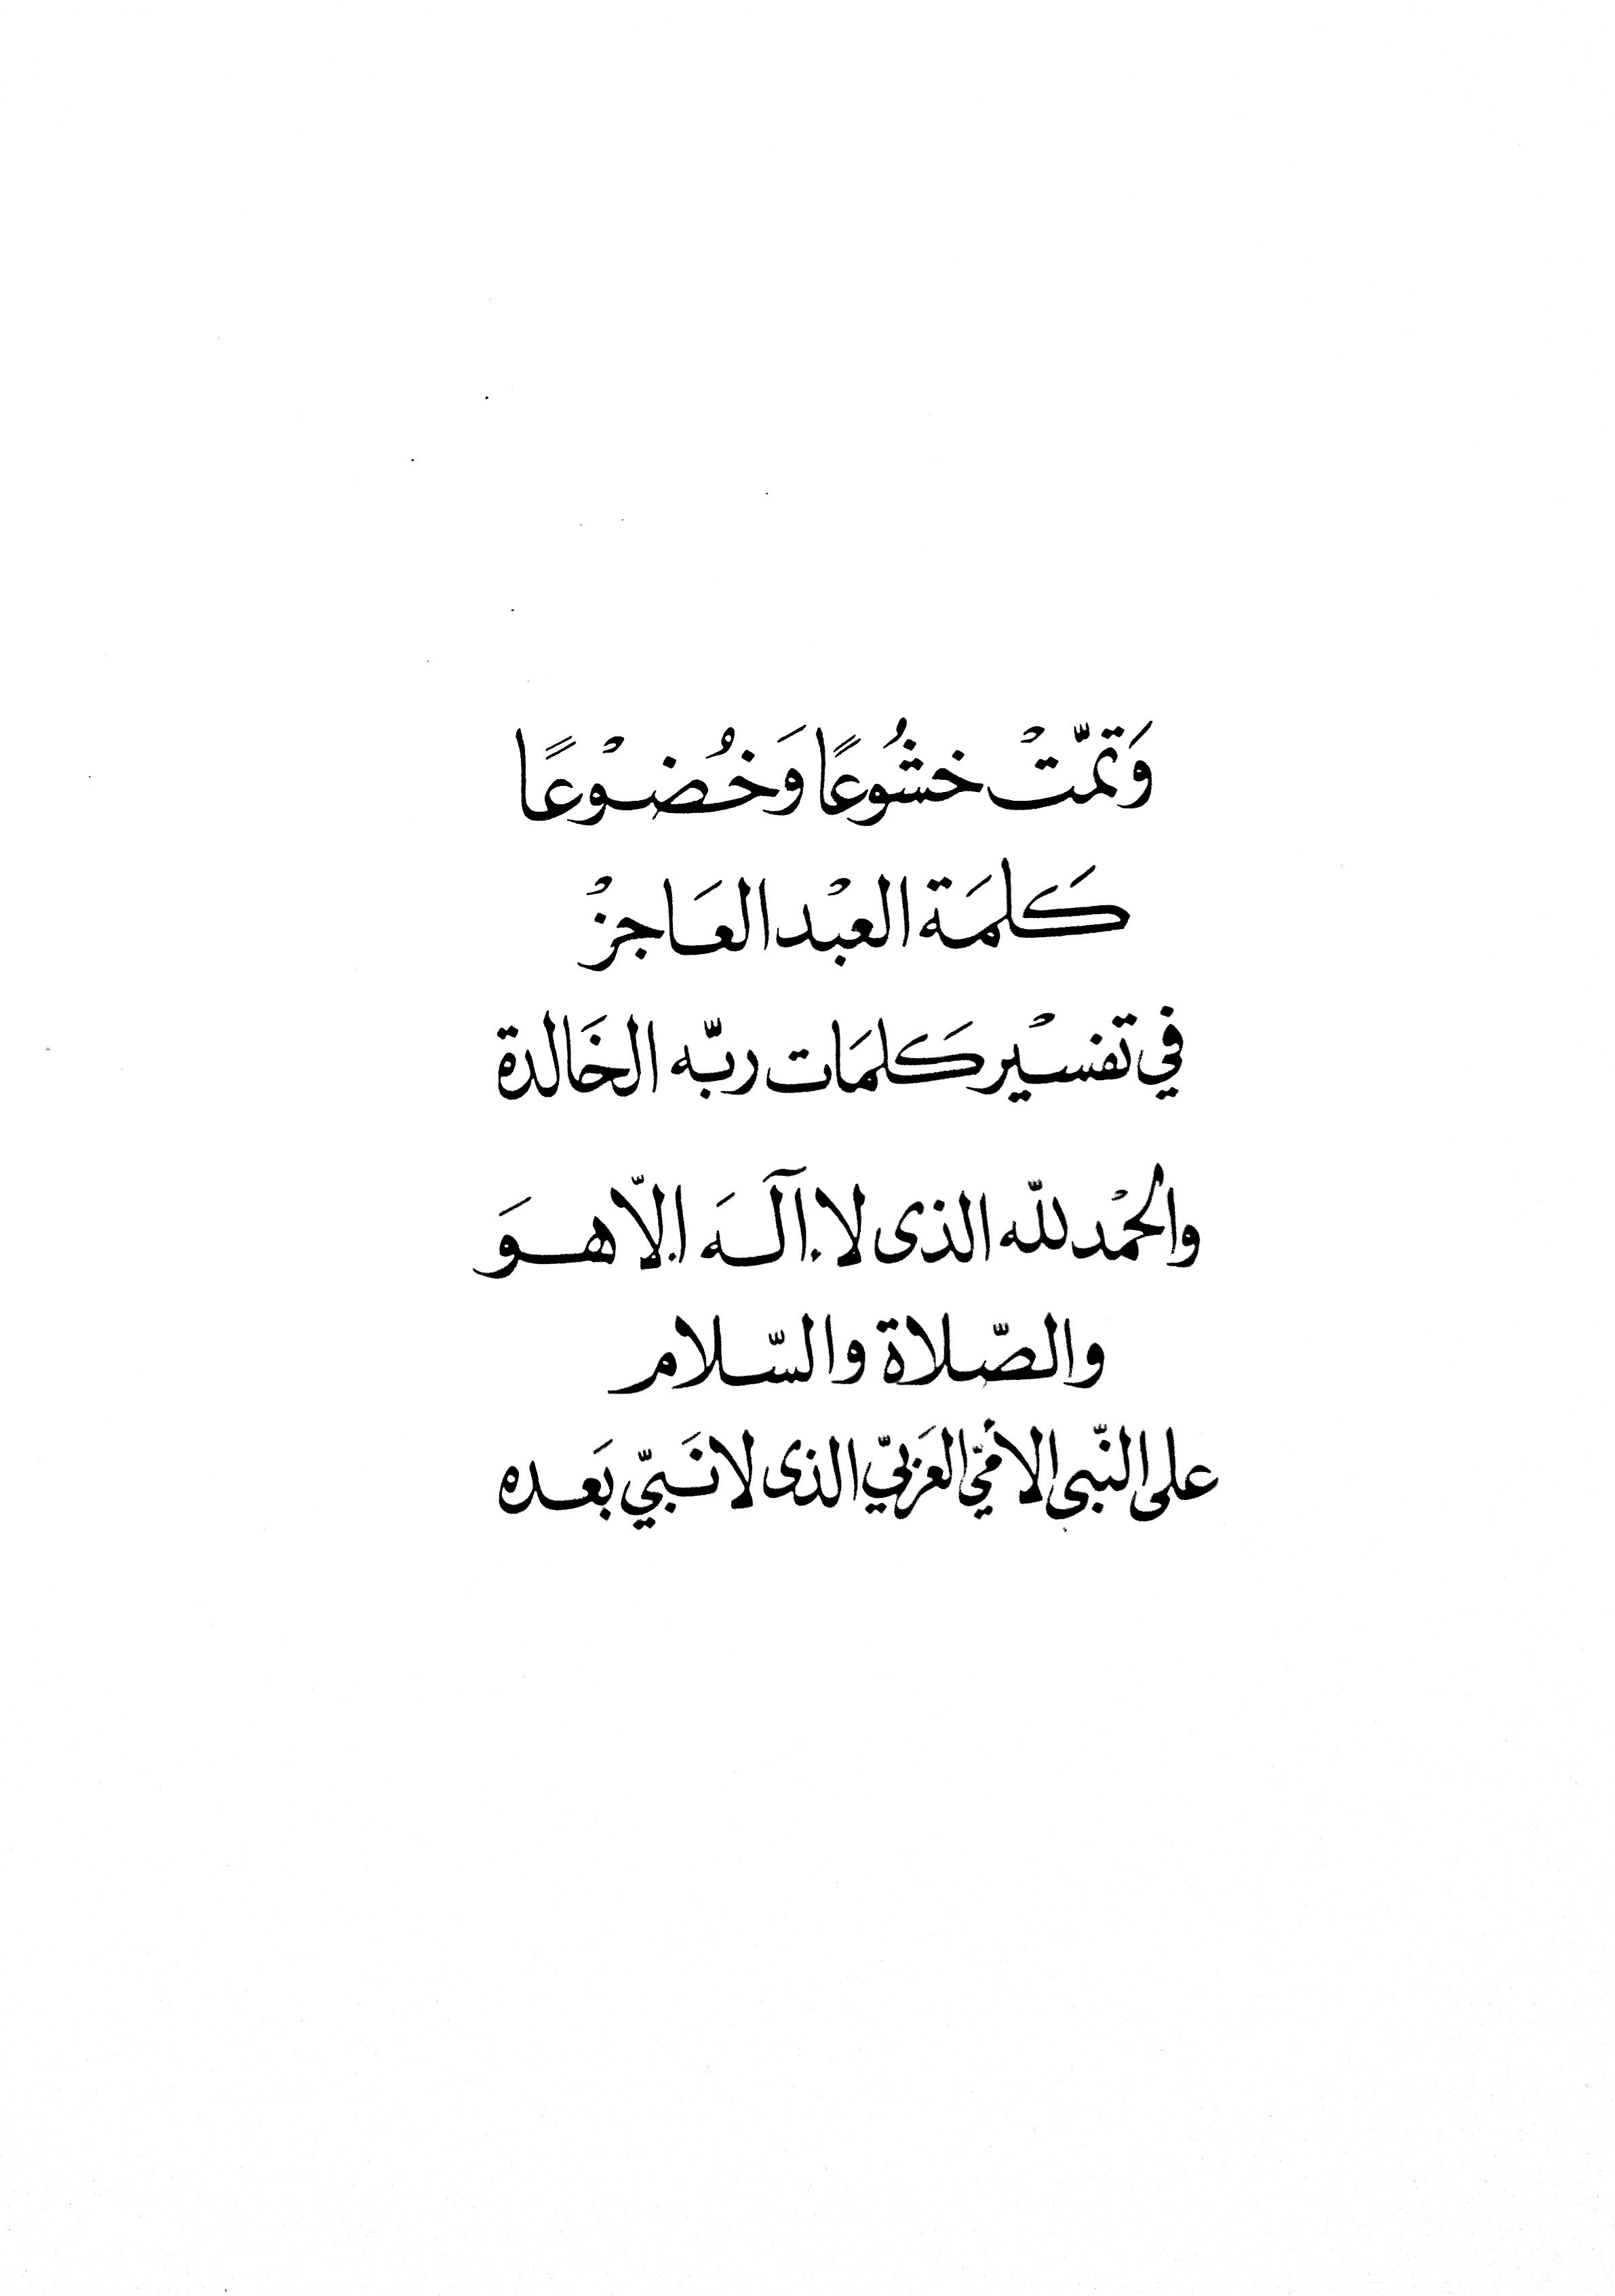 وَتمّتْ خشُوعًا وَخُضوْعًا
كَلمَة العبْد العَاجزُ
في تفسيْر كَلمَات ربّه الخَالدة
والحمْد للّه الذى لا اِلَهَ اِلّا هوَ
والصّلاة والسّلام
على النّبى الأميّ العَربيّ الذى لا نَبيّ بَعده